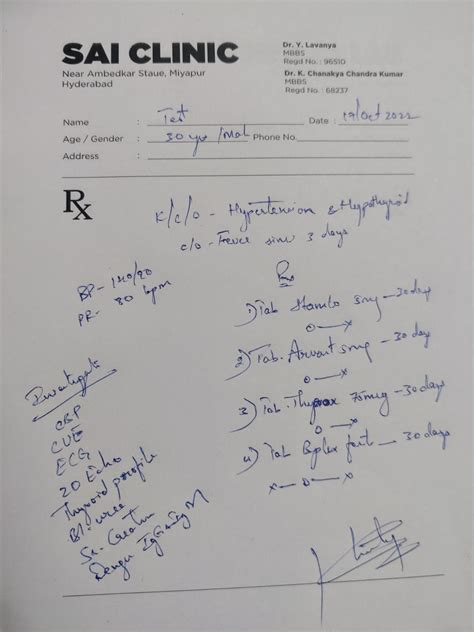 SAI CLINIC
Near Ambedkar Staue, Miyapur
Hyderabad
Dr. Y. Lavanya
MBBS
Regd No.: 96510
Dr. K. Chanakya Chandra Kumar
MBBS
Regd No.: 68237
Name : Test Date : 19/Oct 2022
Age / Gender : 30 yrs/Male Phone No.
Address :
Rx
K/c/o - Hypertension & Hypothyroid
c/o - Fever since 3 days
BP - 140/90
PR - 80 bpm
Rx
1) Tab Stamlo 5mg - 30 days
o — x
2) Tab. 5mg - 30 day
o — x
3) Tab. Thyrox 75mcg - 30 days
o — x
4) Tab Bplex fort - 30 days
x — o — x
Investigate
CBP
CUE
ECG
2D Echo
Thyroid profile
Bl. urea
Sr. Creatin
Dengue IgG IgM